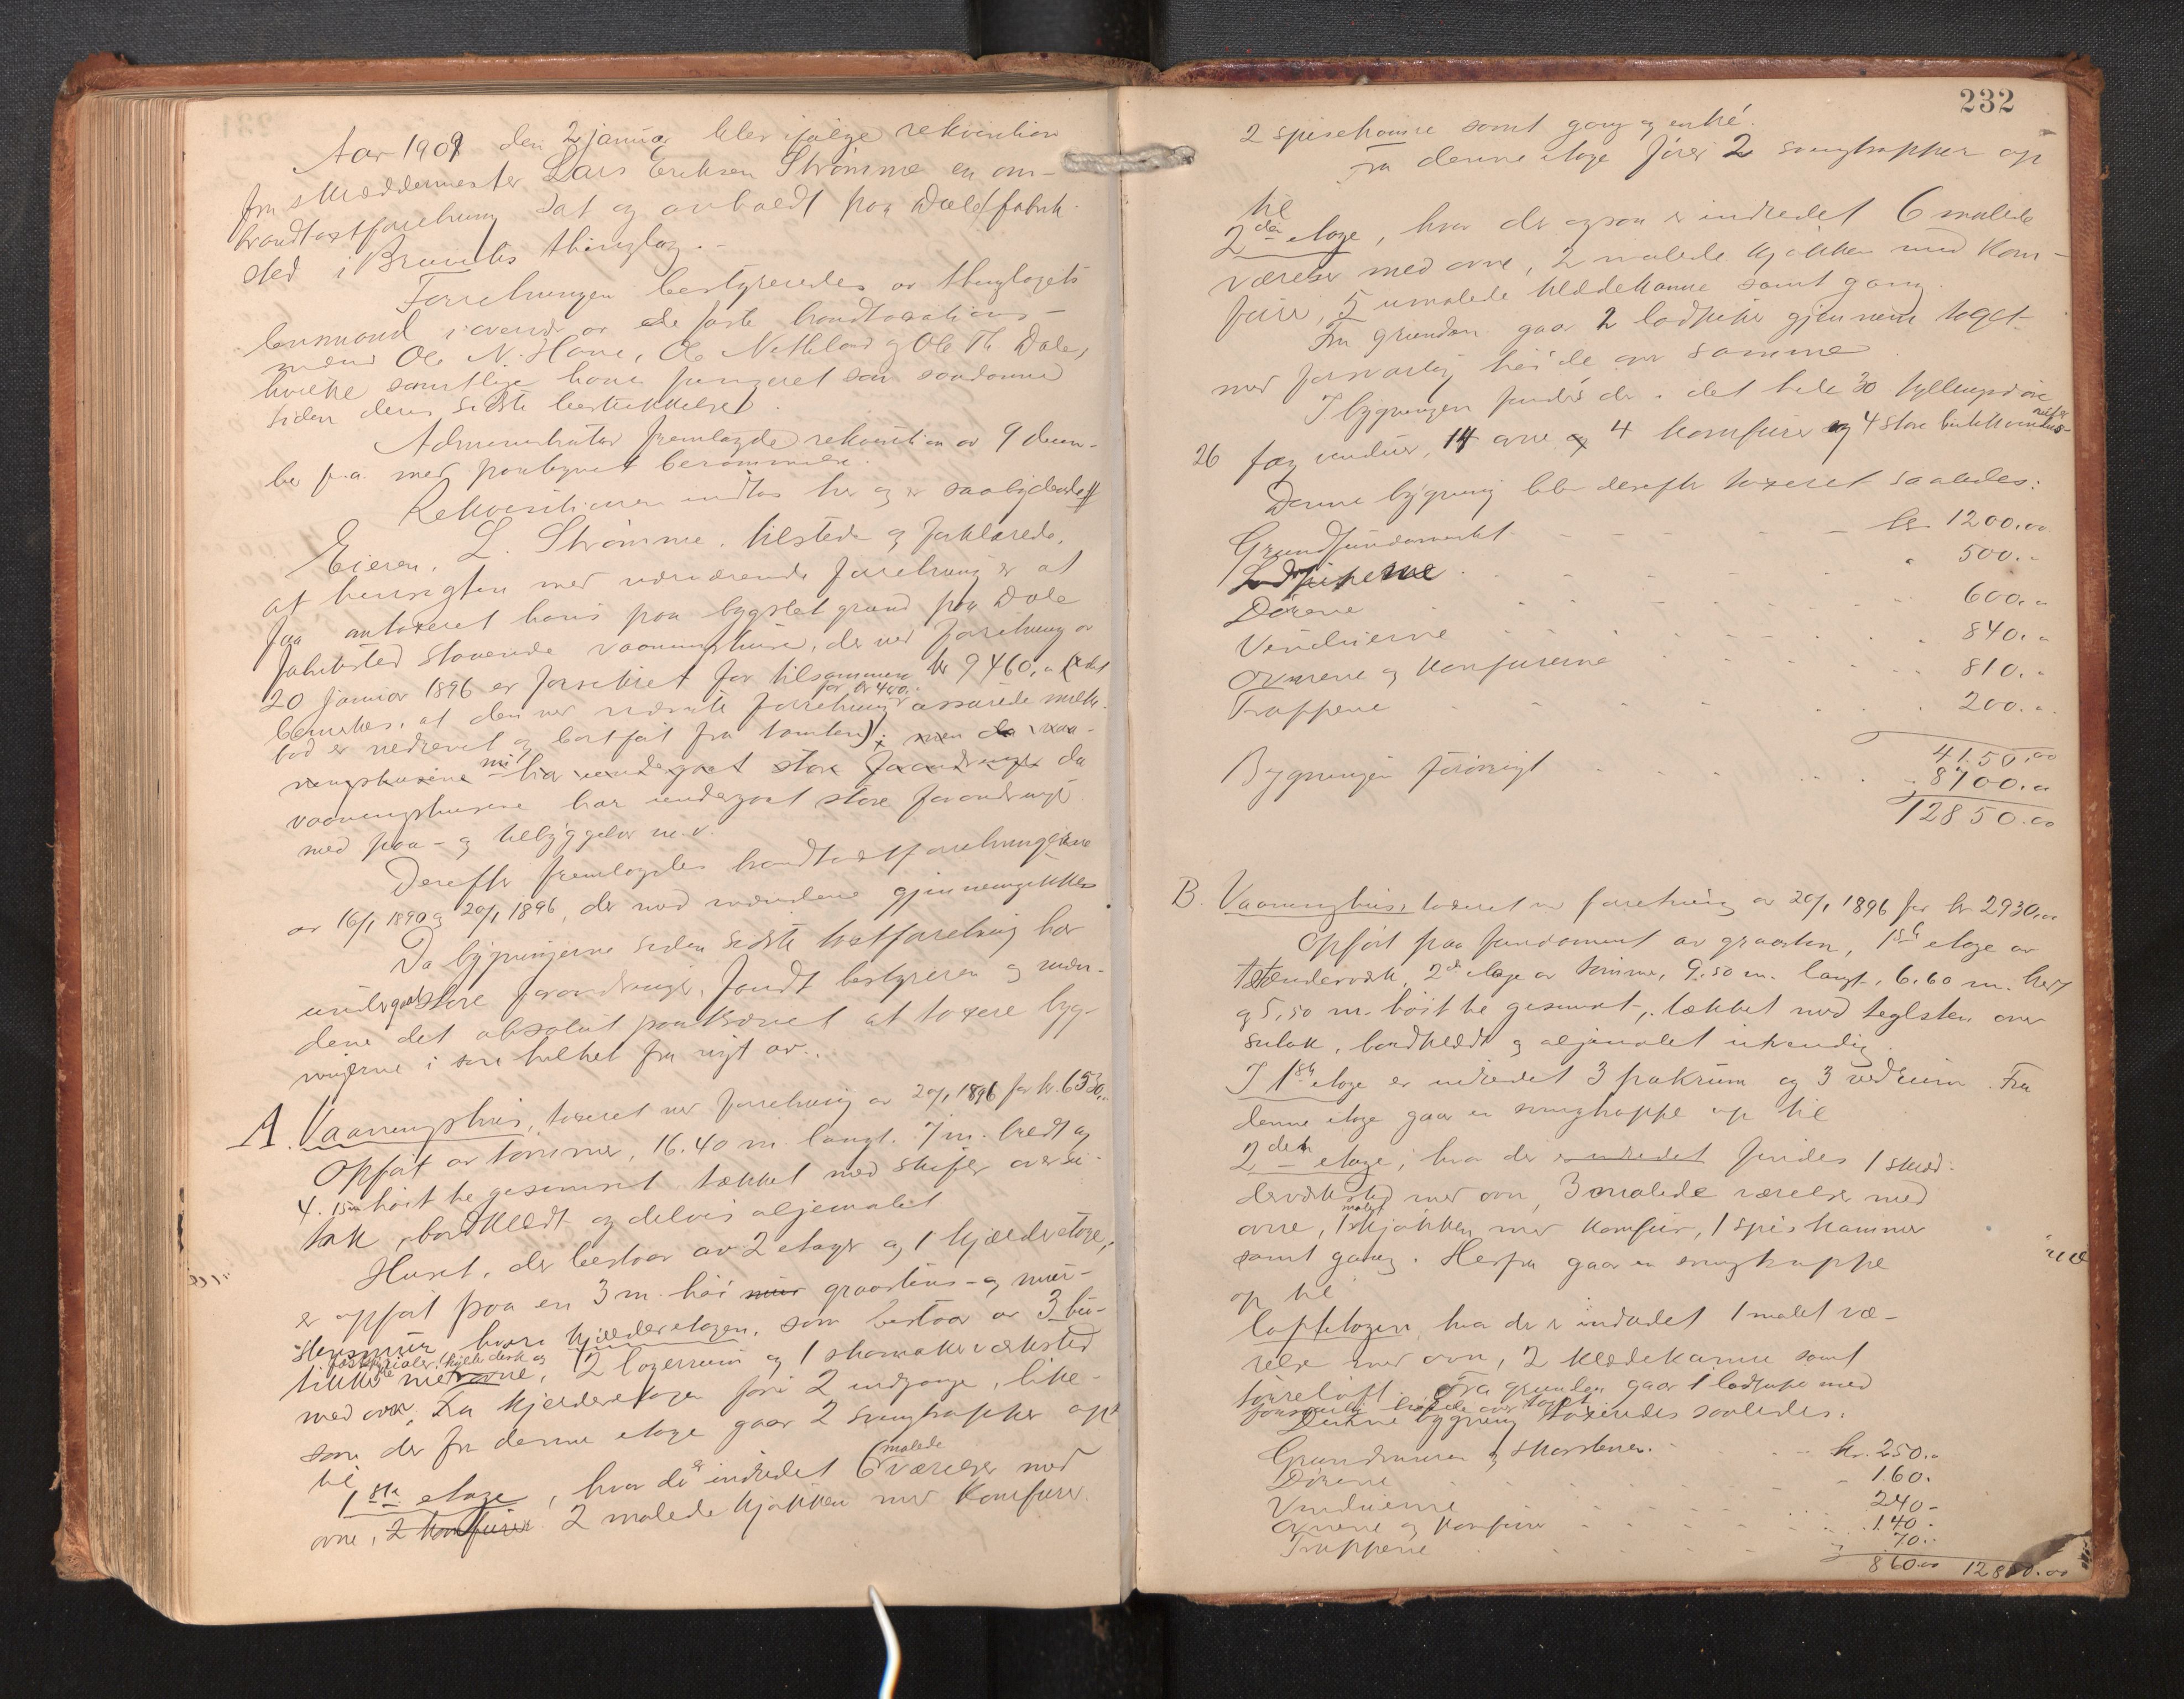 Aar 1909 den 2 januar blev ifølge rekvisition
fra skræddermester Lars Eriksen Strømme en om-
brandtaxtforretning sat og avholdt paa Dale fabrik-
sted i Bruviks thinglag.-
Forretningen bestyredes av thinglagets
lensmand i overvær av de faste brandtaxations-
mænd Ole N. Hove, Ole Nethland og Ole Th Dale,
hvilke samtlige have fungeret som saadanne
siden deres sidste beskikkelse.
Administrator fremlagde rekvisition av 9 decem-
ber f.a. med paategnet berammelse.
Rekvisitionen indtas her og er saalydende #
Eieren, L. Strømme, tilstede og forklarede,
at hensigten med nærværende forretning er at
faa omtaxeret hans paa bygslet grund paa Dale
fabriksted staaende vaaningshuse, der ved forretning av
20 januar 1896 er forsikret for tilsammen kr 9460,00 (Det
bemerkes, at den ved nævnte forretning for kr 400,- assurede
bod er nedrevet og bortført fra tomten); men da vaa-
ningshusene har undergaaet store forandringer da
vaaningshusene har undergaat store forandringer
med paa- og tilbyggelser m.v.
Derefter fremlagdes brandtaxtforretningerne
av 16/1 1890 og 20/1 1896, der med mændene gjennemgikkes
Da bygningerne siden sidste taxtforretning har
undergaat store forandringer, fandt bestyreren og mæn-
dene det absolut paakrævet at taxere byg-
ningerne i sin helhet fra nyt av.
A. Vaaningshus, taxeret ved forretning av 20/1 1896 for kr. 6530,-
Opført av tømmer, 16.40 m. langt. 7 m. bredt og
4.15 m høit til gesimset tækket med skifer over su-
tak, bordklædt og delvis oljemalet
Huset, der bestaar av 2 etager og 1 kjælderetage,
er opført paa en 3 m. høi mur graastens- og mur-
stensmur, hvori kjælderetagen, som bestaar av 3 bu-
tikker med ovne, 2 lagerrum og 1 skomakerværksted
med ovn. Fra kjælderetagen fører 2 indgange, like-
som der fra denne etage gaar 2 svingtrapper op
til
1ste etage, hvor der er indredet 6 malede værelser med
ovne, 2 komfurer 2 malede kjøkken med komfurer.
232
2 spisekamre samt gang og entré.
Fra denne etage fører 2 svingtrapper op
til
2den etage, hvor der ogsaa er indredet 6 malede
værelser med ovne, 2 malede kjøkken med kom-
furer, 5 umalede klædekamre samt gang.
Fra grunden gaar 2 ladpiper gjennem taget
med forsvarlig høide over samme
I bygningen findes der i det hele 30 fyllingsdøre
26 fag vinduer, 14 ovne og 4 komfurer og 4 store butikvinduer
Denne bygning blev derefter taxeret saaledes:
Grundfundamentet - - - - kr 1200.00
Ladpiperne - - - - " 500.-
Dørene - - - - 600.-
Vinduerne - - - - 840.-
Ovnene og komfurerne - - - - 810.-
Trappene - - - - 200.-
4150.00
Bygningen forøvrigt - - - - 8700.00
12850.00
B. Vaaningshus, taxeret ved forretning av 20/1 1896 for kr 2930,00
Opført paa fundament av graasten, 1ste etage av
stenderværk, 2den etage av tømmer, 9.50 m. langt, 6.60 m. bredt
og 5,50 m. høit til gesimset, tækket med teglsten over
sutak, bordklædt og oljemalet utvendig.
I 1ste etage er indredet 3 pakrum og 3 vedrum. Fra
denne etage gaar en svingtrappe op til
2den etage, hvor der er indredet findes 1 skræd-
derværksted med ovn, 3 malede værelser med
ovne, 1 malet kjøkken med komfur, 1 spiskammer
samt gang. Herfra gaar en svingtrappe
op til
loftetagen, hvor der er indredet 1 malet væ-
relse med ovn, 2 klædekamre samt
tørreloft. Fra grunden gaar 1 ladpipe med
forsvarlig høide over taget
Denne bygning taxeredes saaledes:
Grundmuren og skorstenen - - - kr. 250.-
Dørene - - - - 160.
Vinduerne - - - - 240-
Ovnene og komfuren - - - - 140-
Trappene - - - - 70.-
860.00 12850.00